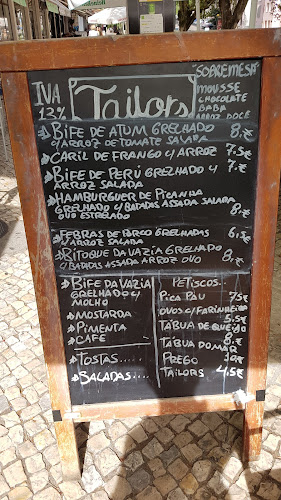 IVA
13%
Tailors
SOBREMESA
MOUSSE
CHOCOLATE
BABA
ARROZ DOCE
BIFE DE ATUM GRELHADO 8.€
C/ ARROZ DE TOMATE SALADA
CARIL DE FRANGO C/ ARROZ 7.5€
BIFE DE PERÚ GRELHADO C/ 7.€
ARROZ SALADA
HAMBURGUER DE PICANHA
GRELHADO C/ BATADAS ASSADA SALADA
OVO ESTRELADO 8.€
FEBRAS DE PORCO GRELHADAS 6.5€
C/ ARROZ SALADA
RITOQUE DA VAZIA GRELHADO
C/ BATADAS ASSADA ARROZ OVO 8.€
BIFE DA VAZIA
GRELHADO C/
MOLHO
MOSTARDA
PIMENTA
CAFE
TOSTAS.....
BALADAS.....
PETISCOS
PICA PAU 7.5€
OVOS C/ FARINHEIRA
5.5€
TABUA DE QUEIJO
8.€
TABUA DO MAR
PREGO 10€
TAILORS 4.5€